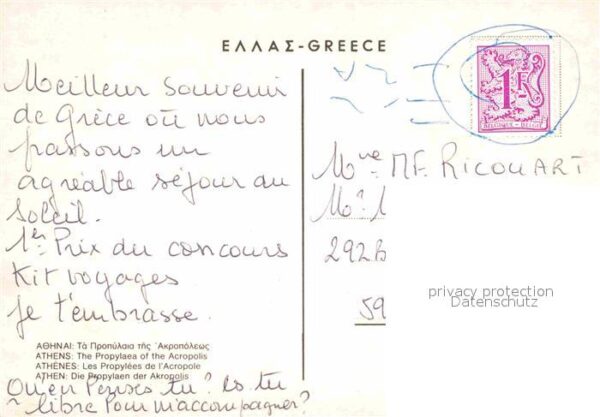 ΕΛΛΑΣ-GREECE
Meilleur souvenir
de Grèce où nous
passons un
agréable séjour au
soleil.
1er Prix du concours
Kit voyages
je t'embrasse.
ΑΘΗΝΑΙ: Τὰ Προπύλαια τῆς Ἀκροπόλεως
ATHENS: The Propylaea of the Acropolis
ATHÈNES: Les Propylées de l'Acropole
ATHEN: Die Propylaen der Akropolis
Qu'en Penses tu? Es tu
libre Pour m'accompagner?
1F
BELGIQUE - BELGIE
Mme MF. RICOUART
292B
59
privacy protection
Datenschutz